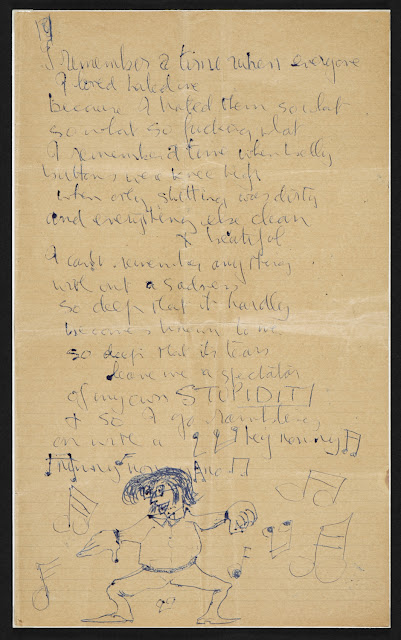 I remember a time when everyone
I loved hated me
because I hated them so what
so what so fucking what
I remember a time when belly
buttons were knee high
when only shitting was dirty
and everything else clean
& beatiful
I can't remember anything
with out a sadness
so deep that it hardly
becomes known to me
so deep that its tears
leave me a spectator
of my own STUPIDITY
& so I go rambling
on with a hey nonny
nonny no